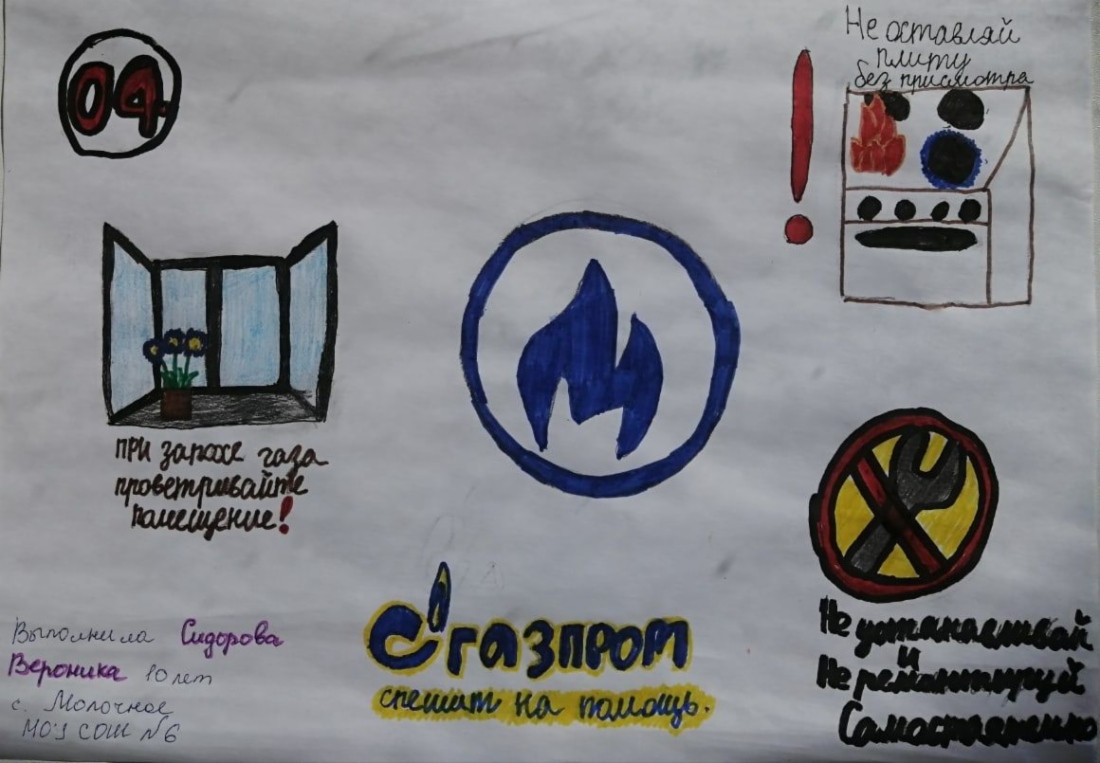 04.
Не оставляй
плиту
без присмотра
При запахе газа
проветривайте
помещение!
газпром
спешит на помощь.
Не устанавливай
и
Не ремонтируй
Самостоятельно
Выполнила Сидорова
Вероника 10 лет
с. Молочное
МОУ СОШ №6